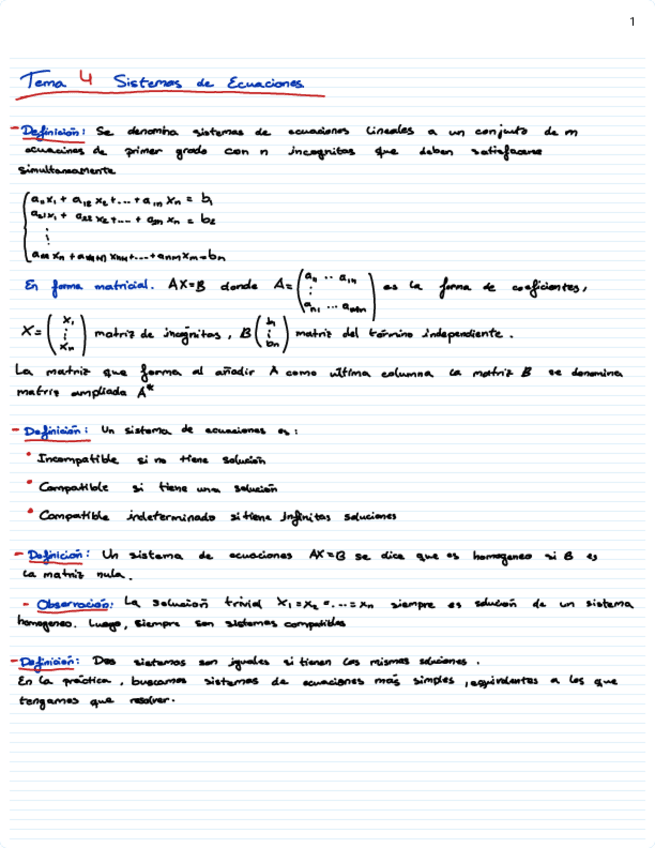 1
Tema 4 Sistemas de Ecuaciones
- Definición: Se denomina sistemas de ecuaciones lineales a un conjunto de m
ecuacines de primer grado con n incognitas que deben satisfacerse
simultaneamente
a₁₁x₁ + a₁₂x₂ + ... + a₁ₙxₙ = b₁
a₂₁x₁ + a₂₂x₂ + ... + a₂ₙxₙ = b₂
⋮
En forma matricial. AX=B donde A= (a₁₁ ·· a₁ₙ ⋮ aₙ₁ ... ) es la forma de coeficientes,
X= (x₁ ⋮ xₙ) matriz de incógnitas, B (b₁ ⋮ bₙ) matriz del término independiente.
La matriz que forma al añadir A como ultima columna la matriz B se denomina
matriz ampliada A*
- Definición: Un sistema de ecuaciones es:
• Incompatible si no tiene solución
• Compatible si tiene una solución
• Compatible indeterminado si tiene infinitas soluciones
- Definición: Un sistema de ecuaciones AX=B se dice que es homogeneo si B es
la matriz nula.
- Observación: La solución trivial x₁=x₂=...=xₙ siempre es solución de un sistema
homogeneo. Luego, siempre son sistemas compatibles
- Definición: Dos sistemas son iguales si tienen las mismas soluciones.
En la práctica, buscamos sistemas de ecuaciones más simples, equivalentes a los que
tengamos que resolver.